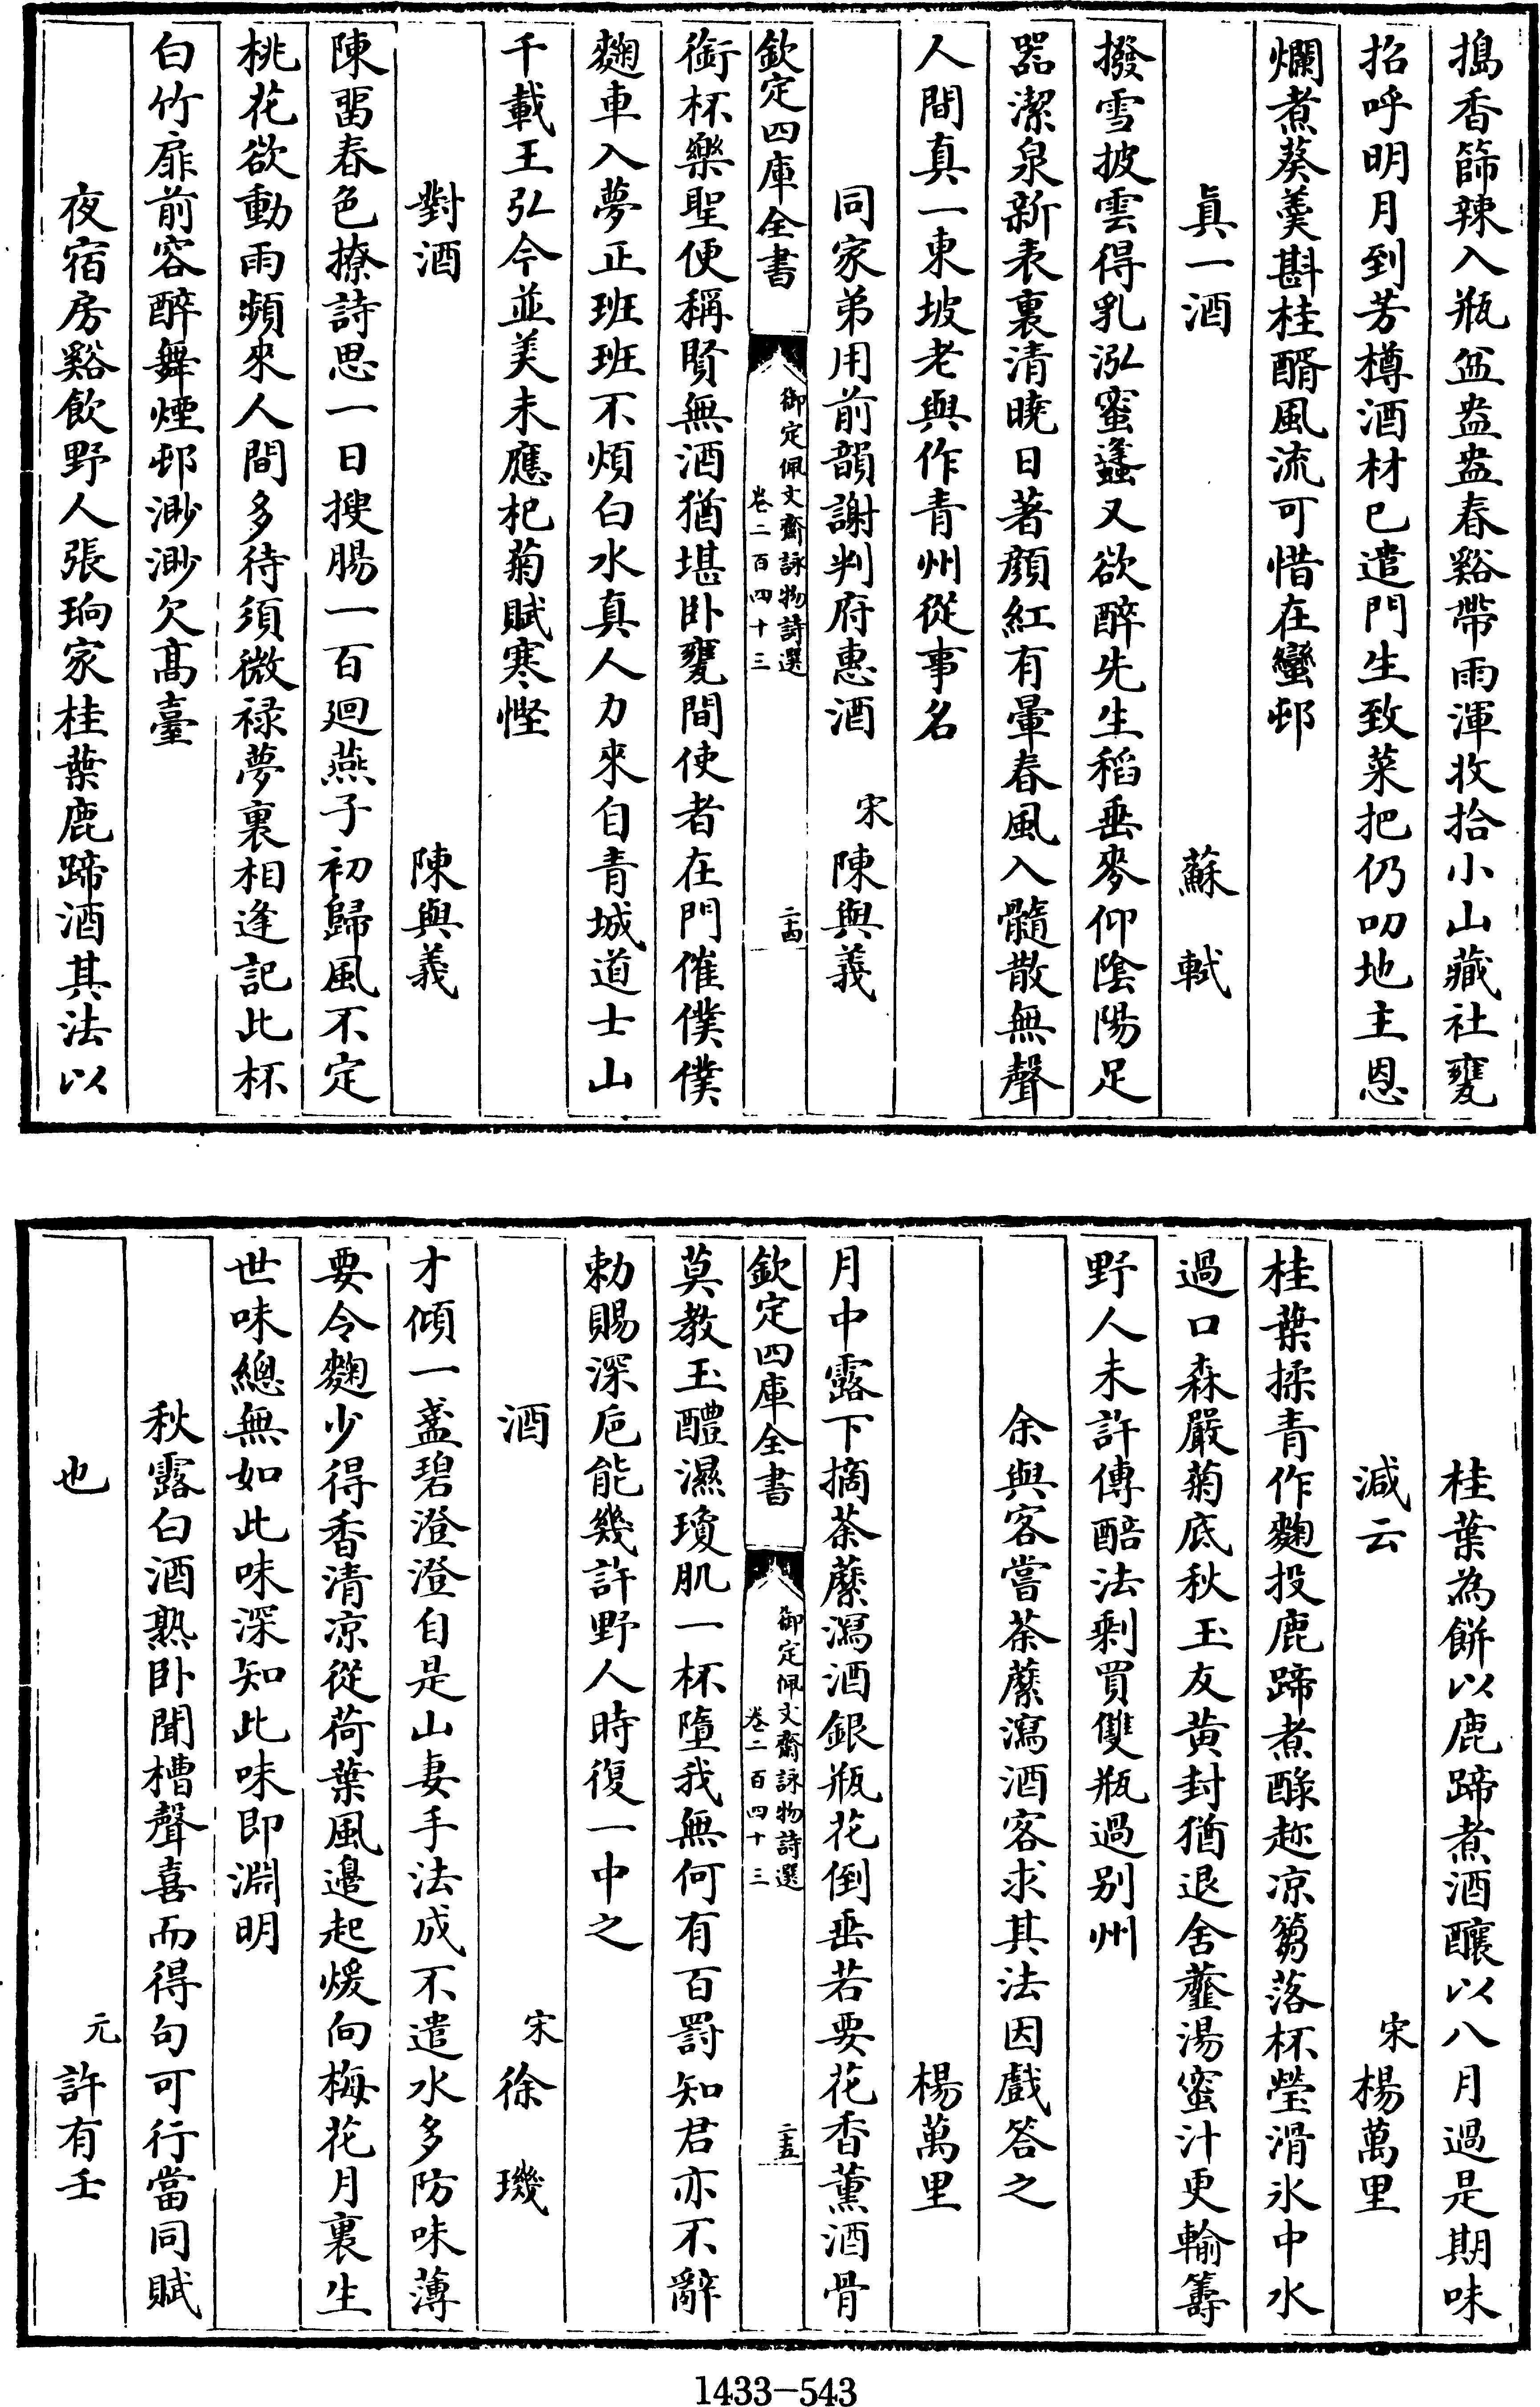 搗香篩辣入瓶盆盎盎春谿帶雨渾收拾小山藏社甕
招呼明月到芳樽酒材已遣門生致菜把仍叨地主恩
爛煮葵羮斟桂醑風流可惜在蠻邨
真一酒　蘇軾
撥雪披雲得乳泓蜜蠭又欲醉先生稻垂麥仰隂陽足
器潔泉新表裏清曉日著顔紅有暈春風入髓散無聲
人間真一東坡老與作青州從事名
同家弟用前韻謝判府惠酒　宋陳與義
欽定四庫全書　御定佩文齋詠物詩選　卷二百四十三　二十四
銜杯樂聖便稱賢無酒猶堪卧甕間使者在門催僕僕
麴車入夢正班班不煩白水真人力來自青城道士山
千載王弘今並美未應杞菊賦寒慳
對酒　陳與義
陳畱春色撩詩思一日搜腸一百廻燕子初歸風不定
桃花欲動雨頻來人間多待須微禄夢裏相逢記此杯
白竹扉前容醉舞煙邨渺渺欠髙臺
夜宿房谿飲野人張珦家桂葉鹿蹄酒其法以
桂葉為餅以鹿蹄煮酒釀以八月過是期味
減云　宋楊萬里
桂葉揉青作麴投鹿蹄煮醁趂凉篘落杯瑩滑氷中水
過口森嚴菊底秋玉友黄封猶退舍虀湯蜜汁更輸籌
野人未許傳醅法剩買雙瓶過别州
余與客嘗荼蘼瀉酒客求其法因戲答之
楊萬里
月中露下摘荼蘼瀉酒銀瓶花倒垂若要花香薫酒骨
欽定四庫全書　御定佩文齋詠物詩選　卷二百四十三　二十五
莫教玉醴濕瓊肌一杯墮我無何有百罸知君亦不辭
勅賜深巵能幾許野人時復一中之
酒　宋徐璣
才傾一盞碧澄澄自是山妻手法成不遣水多防味薄
要令麴少得香清凉從荷葉風邊起煖向梅花月裏生
世味總無如此味深知此味即淵明
秋露白酒熟卧聞槽聲喜而得句可行當同賦
也　元許有壬
1433-543